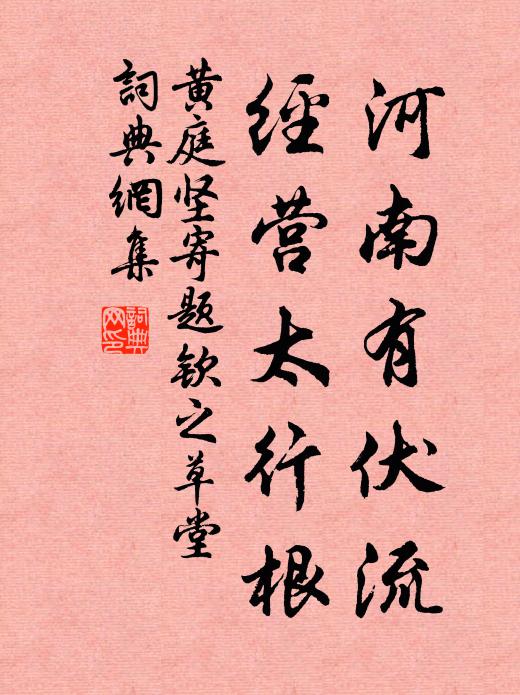 河南有伏流
經营太行根
黄庭坚寄题欽之草堂
詞典網集
詞典
网印